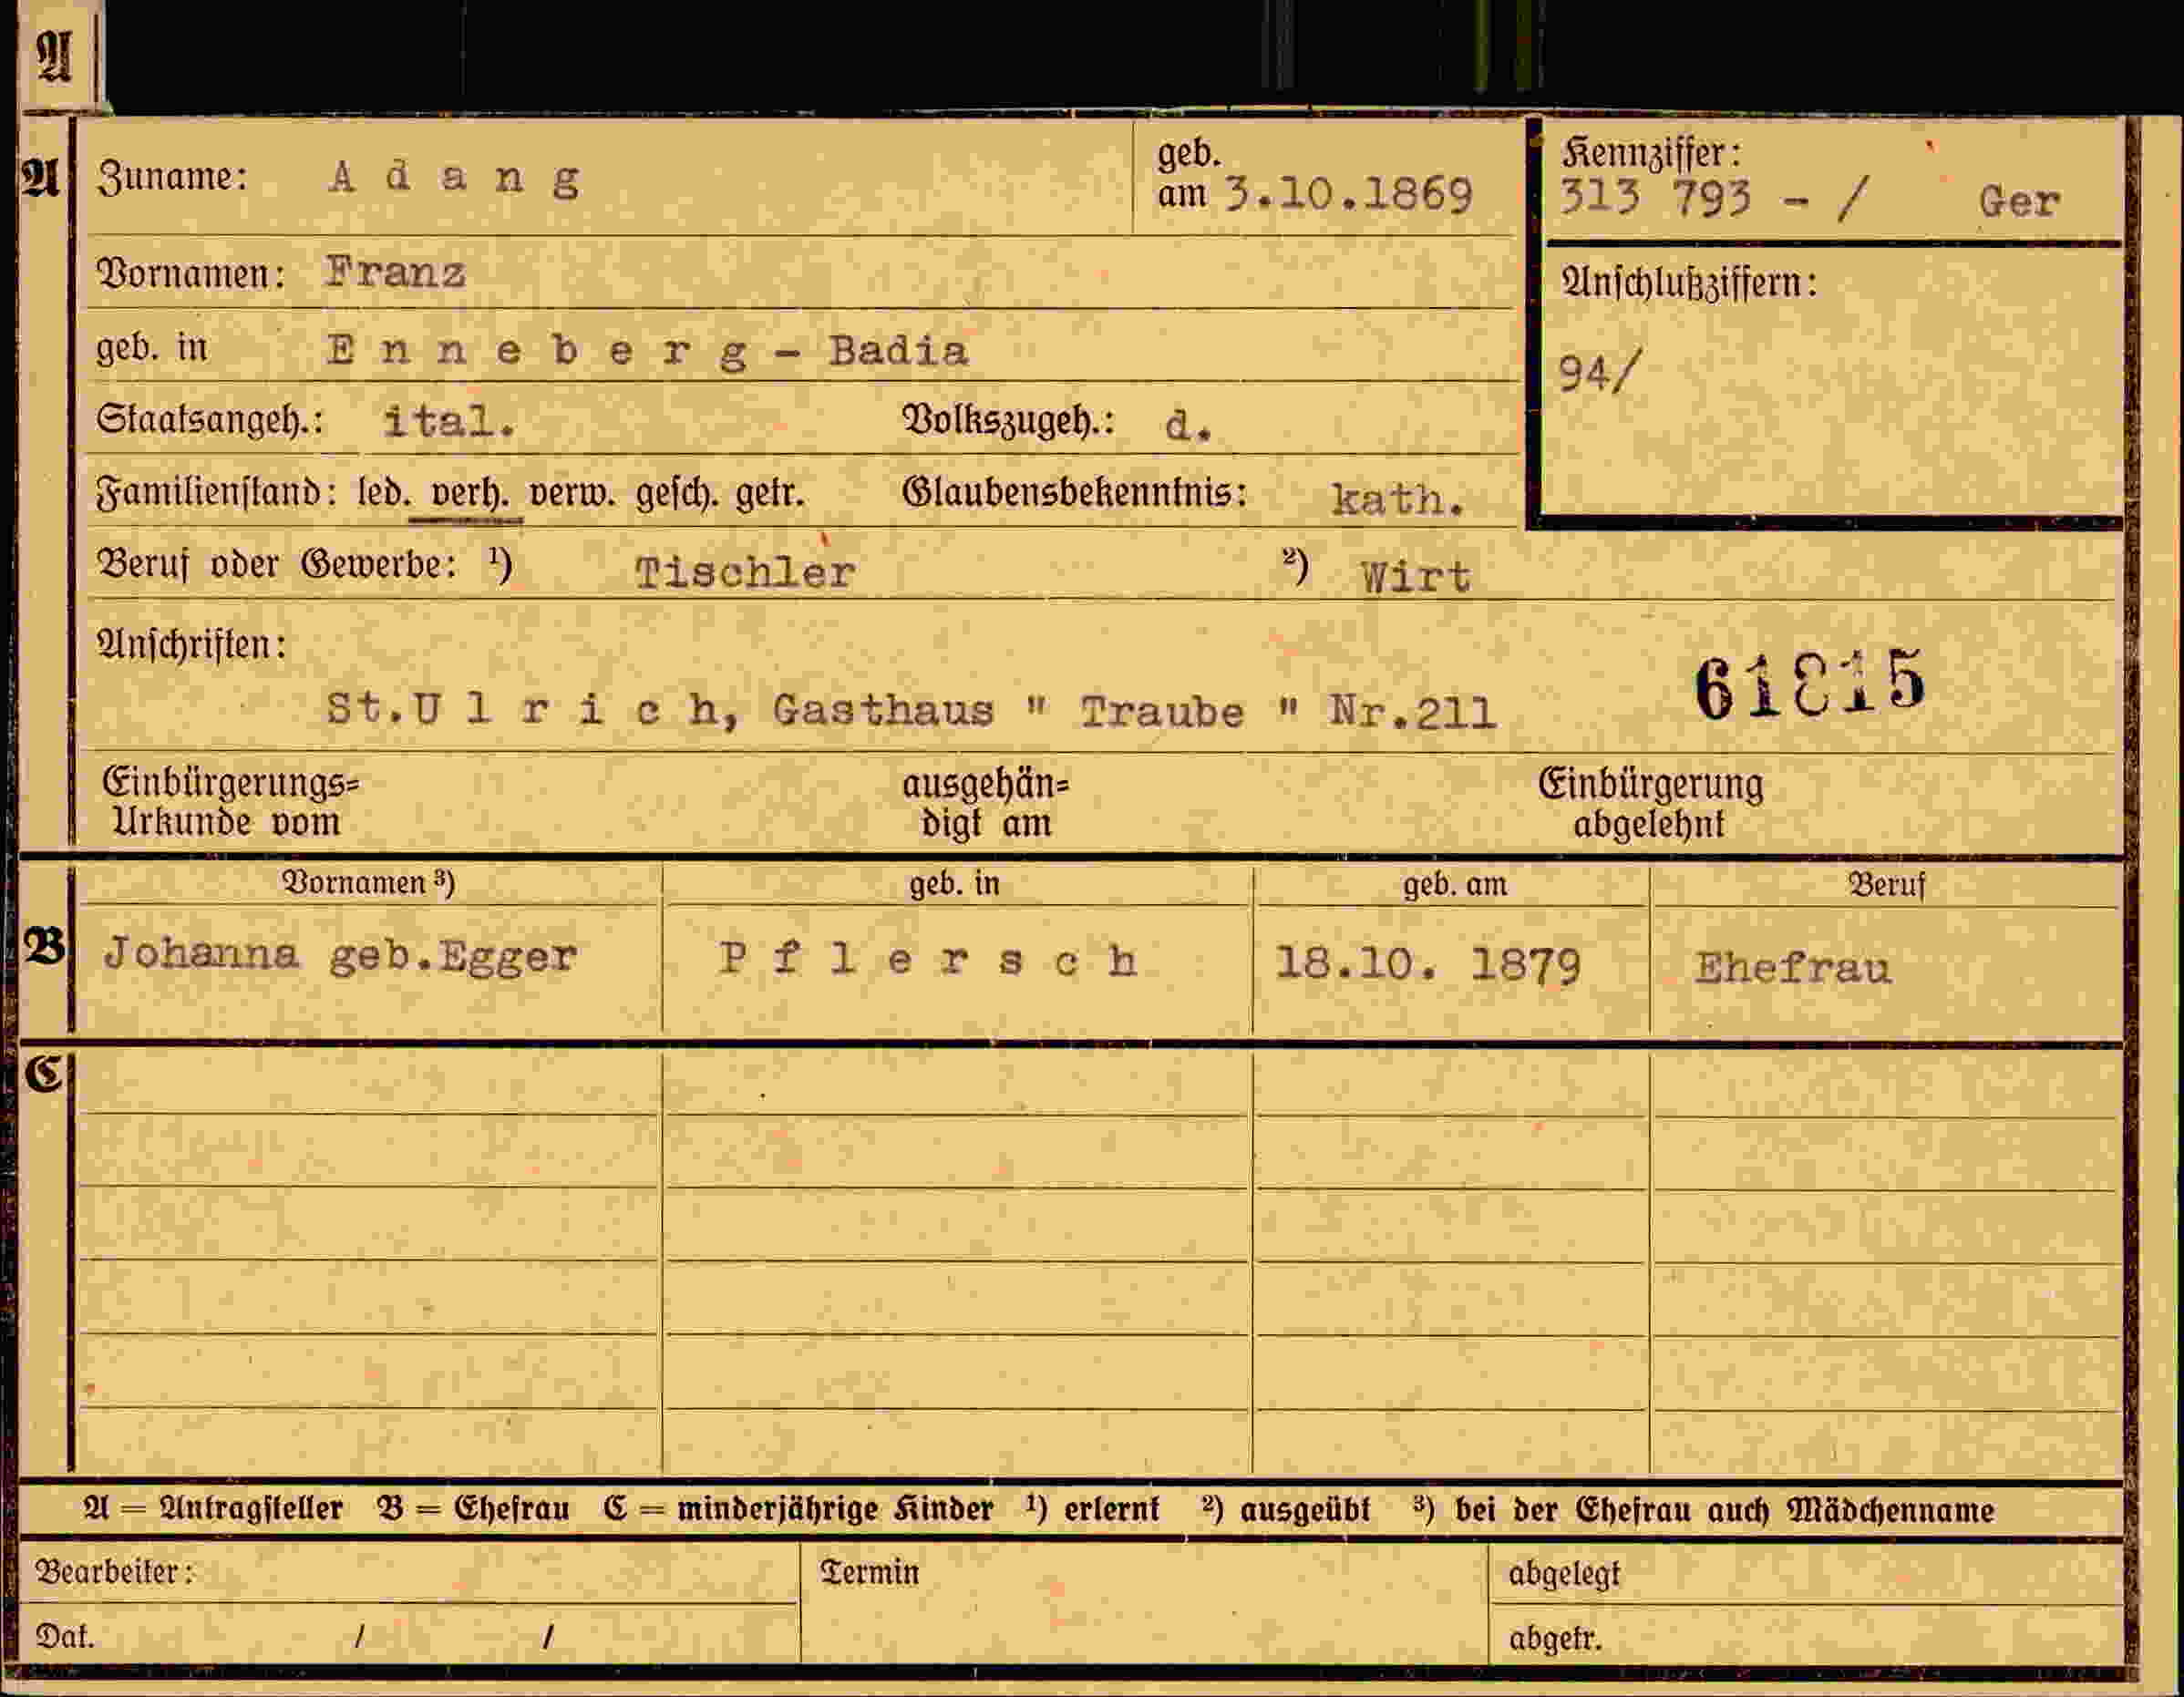 A
A Zuname: A d a n g geb. am 3.10.1869 Kennziffer: 313 793 - / Ger
Vornamen: Franz
Anschlußziffern:
geb. in E n n e b e r g - Badia
94/
Staatsangeh.: ital. Volkszugeh.: d.
Familienstand: led. verh. verw. gesch. getr. Glaubensbekenntnis: kath.
Beruf oder Gewerbe: ¹) Tischler ²) Wirt
Anschriften:
St.U l r i c h, Gasthaus " Traube " Nr.211
61815
Einbürgerungs=
Urkunde vom
ausgehän=
digt am
Einbürgerung
abgelehnt
Vornamen ³) geb. in geb. am Beruf
B Johanna geb.Egger P f l e r s c h 18.10. 1879 Ehefrau
C
A = Antragsteller B = Ehefrau C = minderjährige Kinder ¹) erlernt ²) ausgeübt ³) bei der Ehefrau auch Mädchenname
Bearbeiter: Termin abgelegt
Dat. / / abgetr.